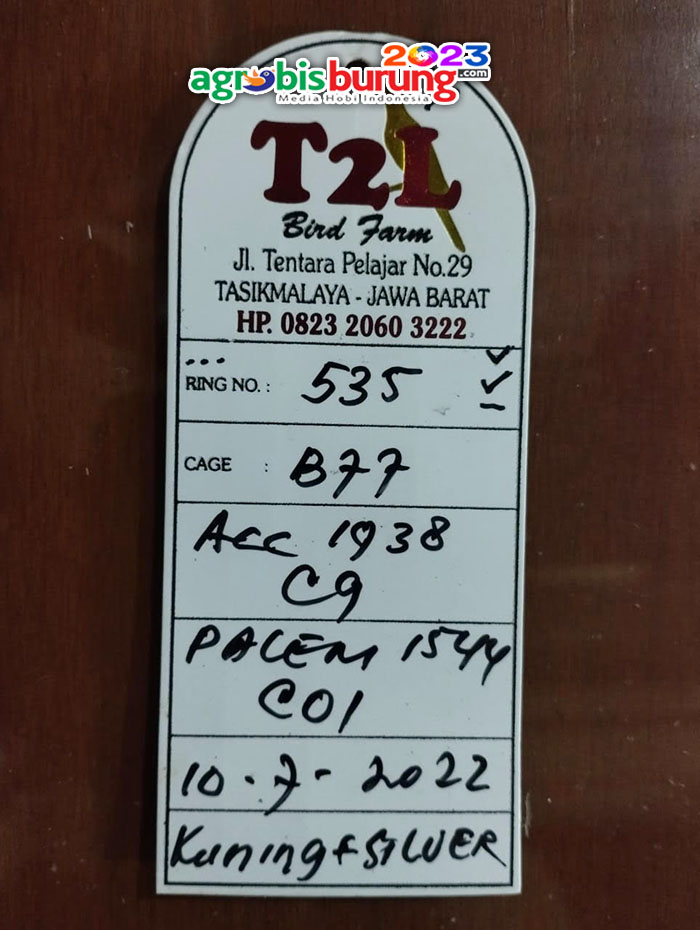 2023
agrobisburung.com
Media Hobi Indonesia
T2L
Bird Farm
Jl. Tentara Pelajar No.29
TASIKMALAYA - JAWA BARAT
HP. 0823 2060 3222
RING NO. : 535
CAGE : B77
Acc 1938
C9
PALEM 1544
C01
10-7-2022
Kuning+SILVER